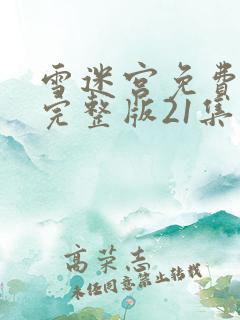 雪迷宫免费
完整版21集
高荣志
未经同意禁止转载